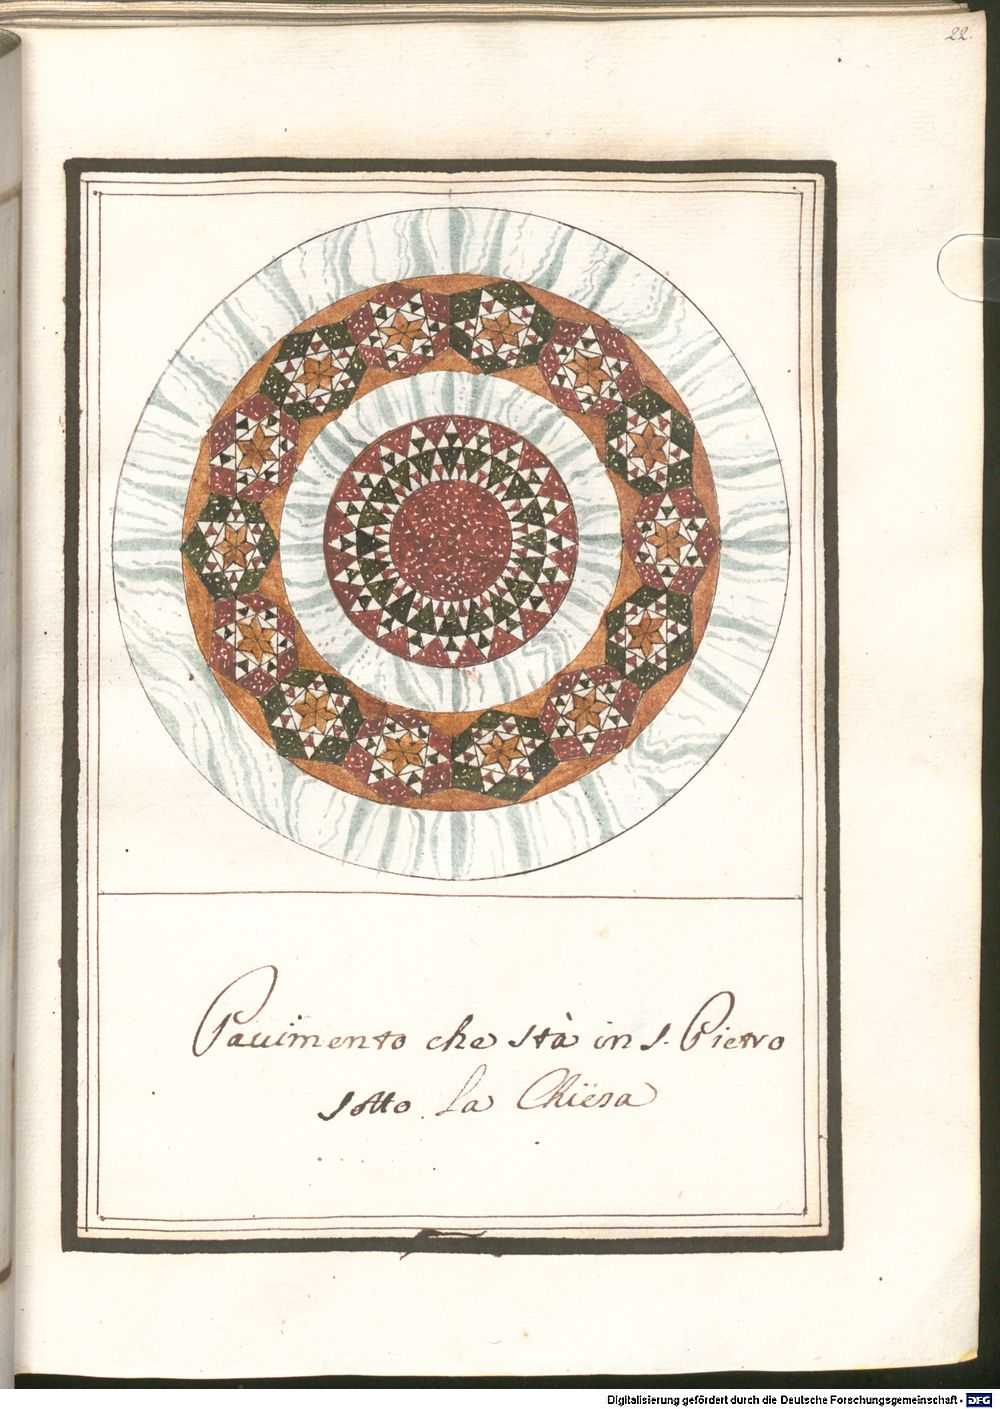 22.
Pauimento che stà in s. Pietro
sotto La Chiësa
Digitalisierung gefördert durch die Deutsche Forschungsgemeinschaft - DFG